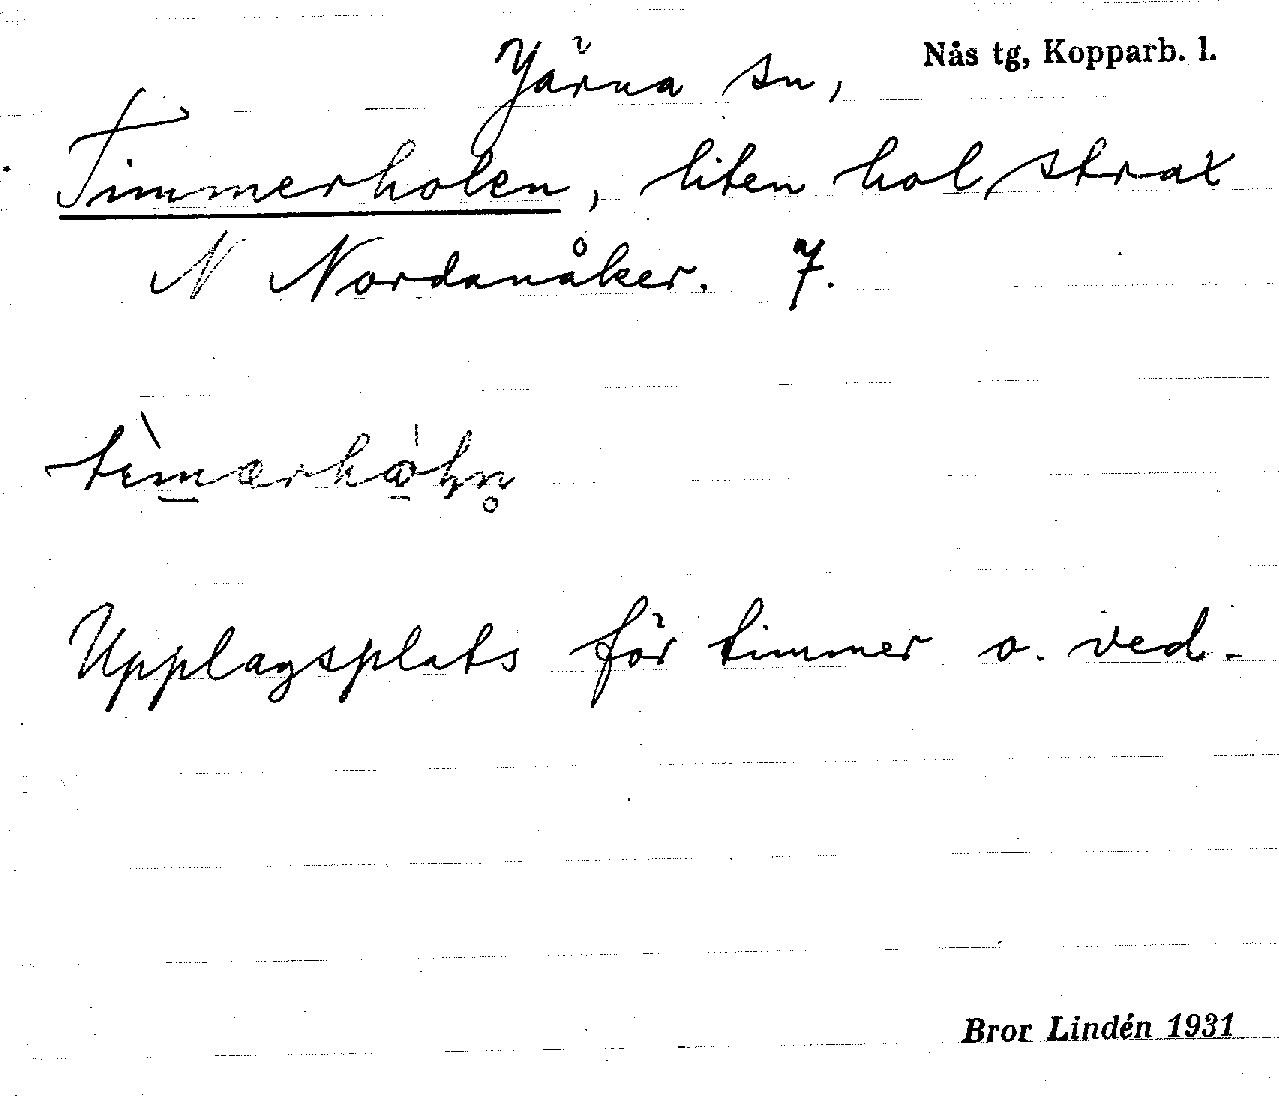 Järna sn, Nås tg, Kopparb. l.
Timmerholen, liten hol strax
N Nordanåker. 7.
Upplagsplats för timmer o. ved.
Bror Lindén 1931